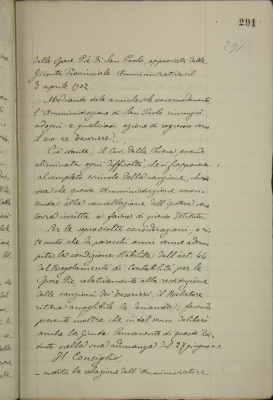 291
291
delle Opere Pie di San Paolo, approvata dalla
Giunta Provinciale Amministrativa il
3 aprile 1902.
Mediante tale amichevole
l'Amministrazione di San Paolo rinunciò
ad ogni e qualsiasi azione di regresso verso
il suo ex Tesoriere.
Ciò stante, il Cav. della Chiesa, essendo
eliminata ogni difficoltà,
al completo svincolo della cauzione,
che questa Amministrazione
alla cancellazione dell'ipoteca
iscritta a favore di questo Istituto.
Per le sopraesposte considerazioni, e ri-
tenuto che da parecchi anni venne adem-
pita la condizione stabilita dall'art. 64
del Regolamento di Contabilità per le
Opere Pie relativamente alla restituzione
delle cauzioni dei tesorieri, il Relatore
ritiene accoglibile la domanda,
presente inoltre che in tal senso deliberò
anche la Giunta Permanente di questo Isti-
tuto nella sua adunanza del 27 giugno
Il Consiglio
udita la relazione dell'Amministratore